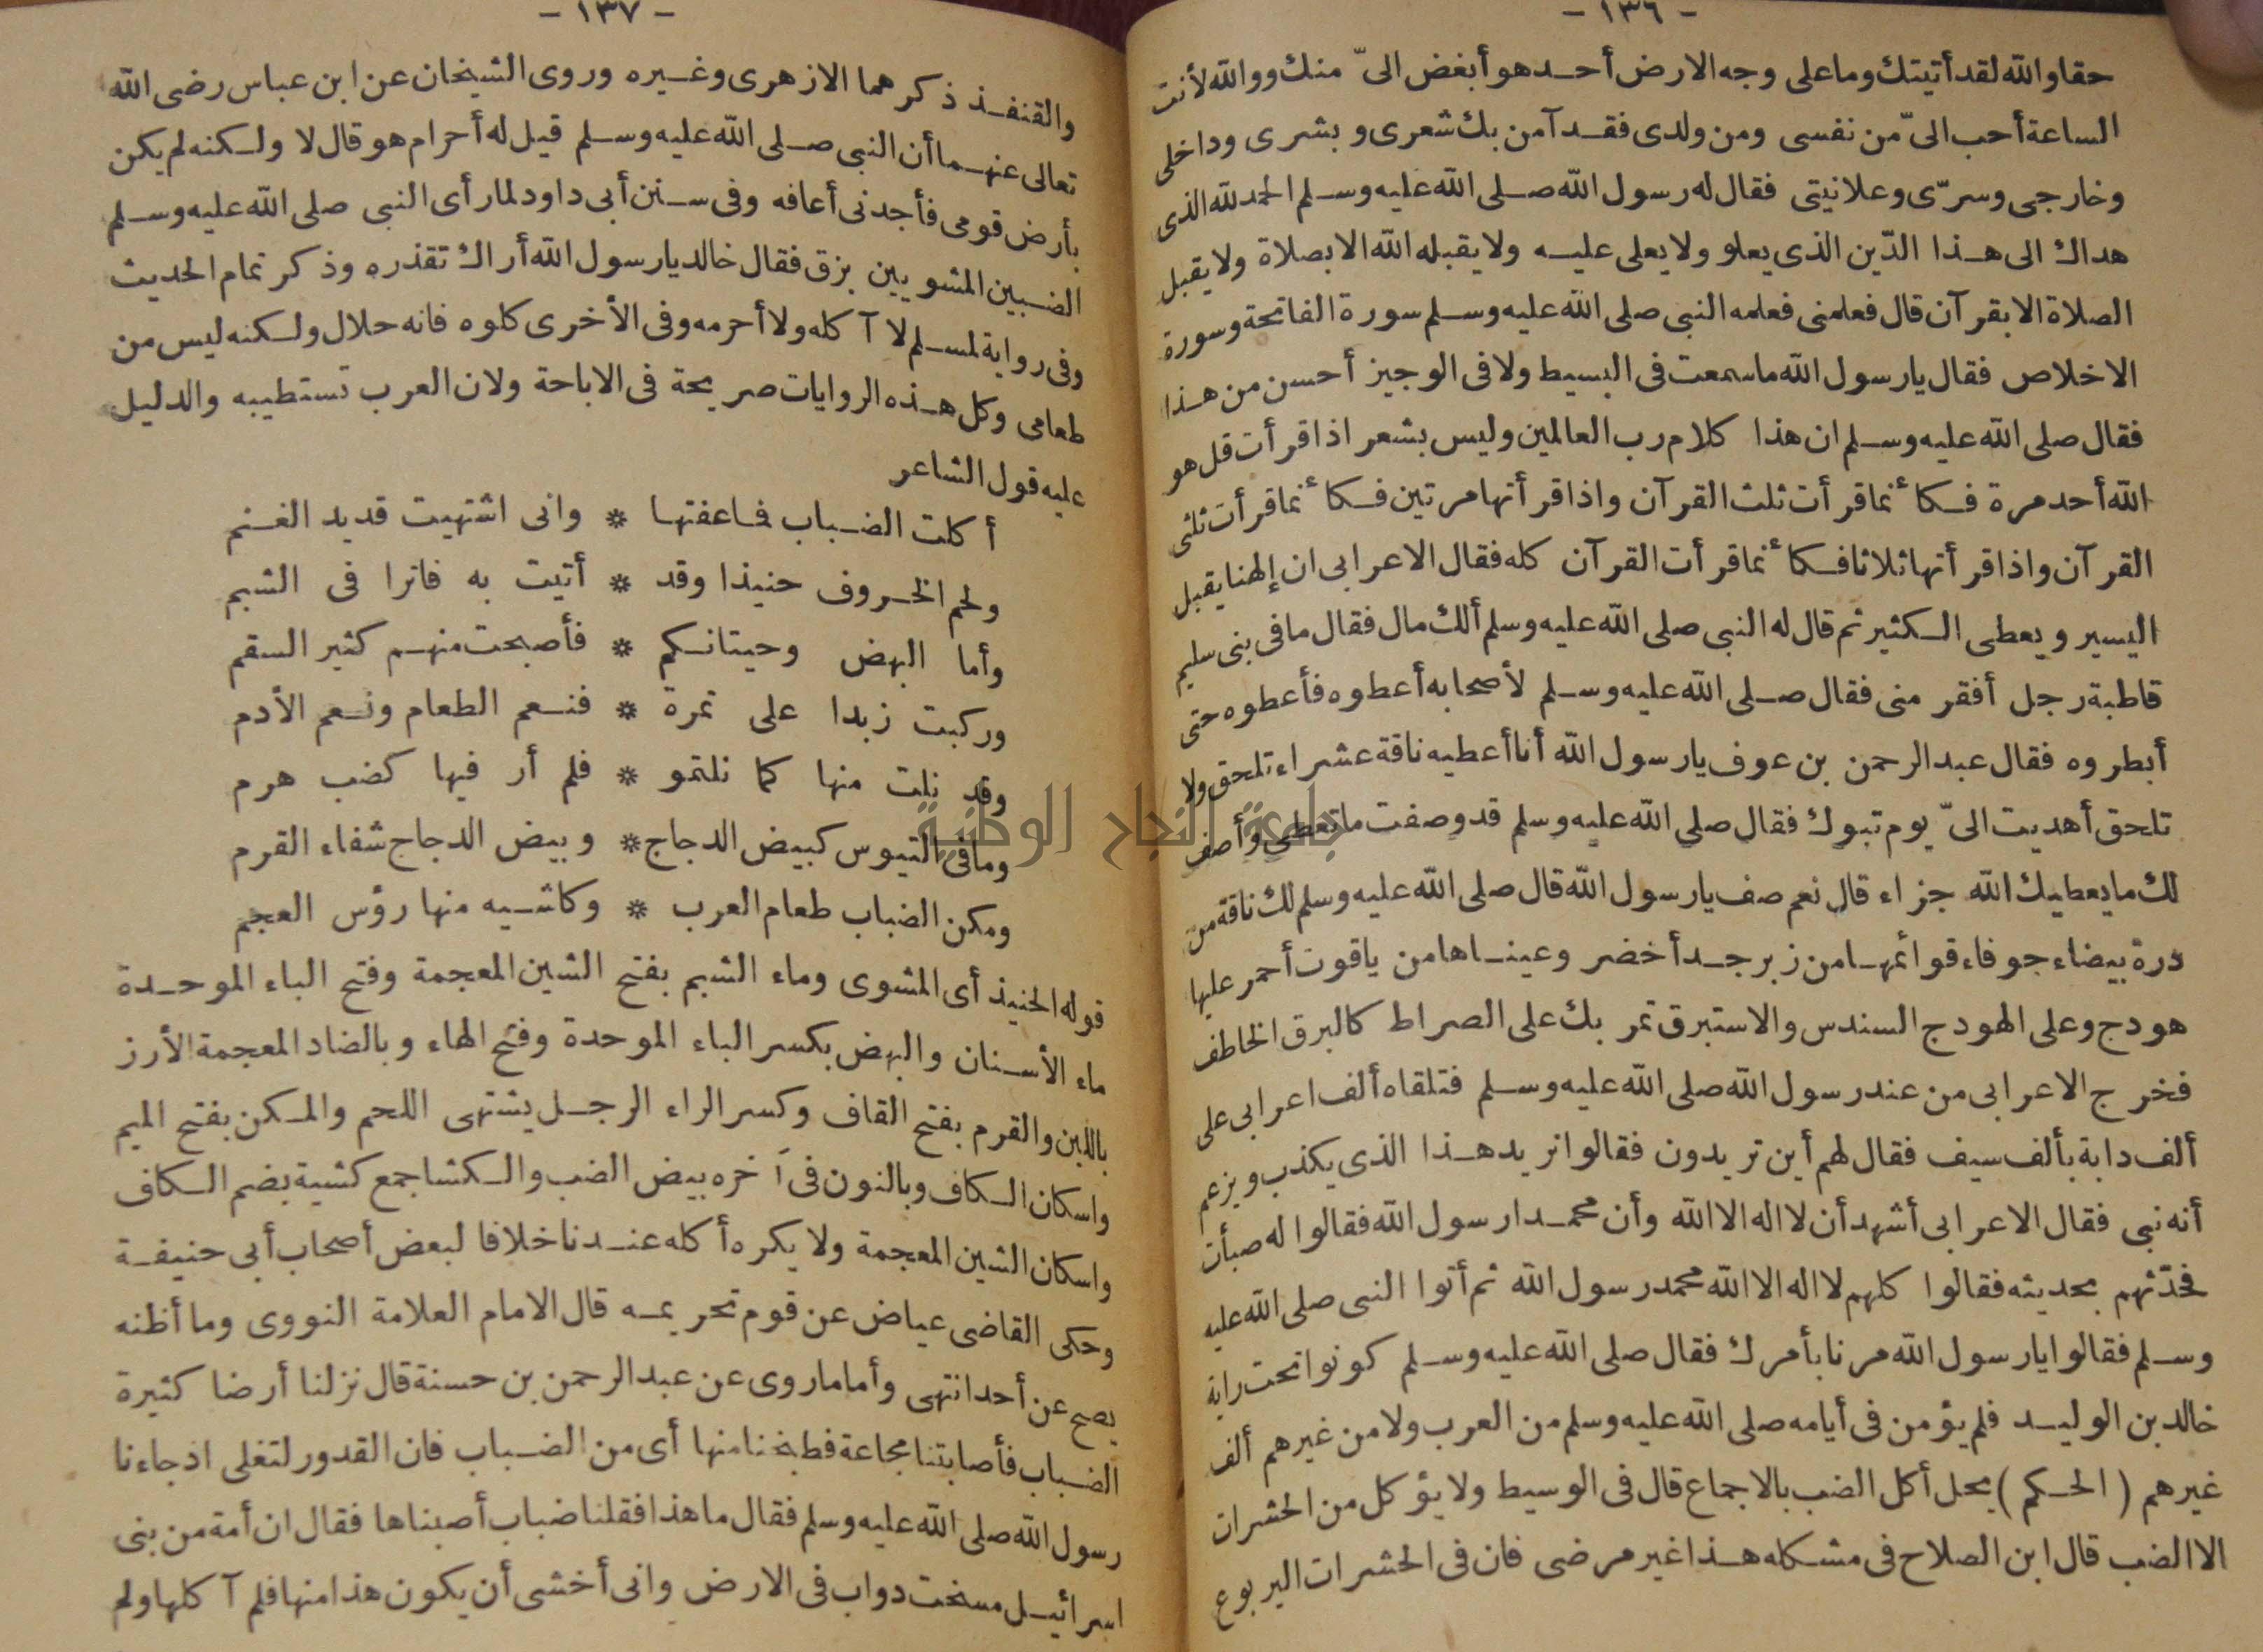 - ١٣٦ -
حقا والله لقد أتيتك وما على وجه الارض أحد هو أبغض الىّ منك ووالله لأنت
الساعة أحب الىّ من نفسى ومن ولدى فقد آمن بك شعرى وبشرى وداخلى
وخارجى وسرّى وعلانيتى فقال له رسول الله صلى الله عليه وسلم الحمد لله الذى
هداك الى هذا الدّين الذى يعلو ولا يعلى عليه ولا يقبله الله الا بصلاة ولا يقبل
الصلاة الا بقرآن قال فعلمنى فعلمه النبى صلى الله عليه وسلم سورة الفاتحة وسورة
الاخلاص فقال يارسول الله ما سمعت فى البسيط ولا فى الوجيز أحسن من هذا
فقال صلى الله عليه وسلم ان هذا كلام رب العالمين وليس بشعر اذا قرأت قل هو
الله أحد مرة فكأنما قرأت ثلث القرآن واذا قرأتها مرتين فكأنما قرأت ثلثى
القرآن واذا قرأتها ثلاثا فكأنما قرأت القرآن كله فقال الاعرابى ان إلهنا يقبل
اليسير ويعطى الكثير ثم قال له النبى صلى الله عليه وسلم ألك مال فقال ما فى بنى سليم
قاطبة رجل أفقر منى فقال صلى الله عليه وسلم لأصحابه أعطوه فأعطوه حتى
أبطروه فقال عبد الرحمن بن عوف يارسول الله أنا أعطيه ناقة عشراء تلحق ولا
تلحق أهديت الىّ يوم تبوك فقال صلى الله عليه وسلم قد وصفت ما تعطى وأصف
لك ما يعطيك الله جزاء قال نعم صف يارسول الله قال صلى الله عليه وسلم لك ناقة من
درة بيضاء جوفاء قوائمها من زبرجد أخضر وعيناها من ياقوت أحمر عليها
هودج وعلى الهودج السندس والاستبرق تمر بك على الصراط كالبرق الخاطف
فخرج الاعرابى من عند رسول الله صلى الله عليه وسلم فتلقاه ألف اعرابى على
ألف دابة بألف سيف فقال لهم أين تريدون فقالوا نريد هذا الذى يكذب ويزعم
أنه نبى فقال الاعرابى أشهد أن لا اله الا الله وأن محمدا رسول الله فقالوا له صبأت
فحدّثهم بحديثه فقالوا كلهم لا اله الا الله محمد رسول الله ثم أتوا النبى صلى الله عليه
وسلم فقالوا يارسول الله مرنا بأمرك فقال صلى الله عليه وسلم كونوا تحت راية
خالد بن الوليد فلم يؤمن فى أيامه صلى الله عليه وسلم من العرب ولا من غيرهم ألف
غيرهم (الحكم) يحل أكل الضب بالاجماع قال فى الوسيط ولا يؤكل من الحشرات
الا الضب قال ابن الصلاح فى مشكله هذا غير مرضى فان فى الحشرات اليربوع
- ١٣٧ -
والقنفذ ذكرهما الازهرى وغيره وروى الشيخان عن ابن عباس رضى الله
تعالى عنهما أن النبى صلى الله عليه وسلم قيل له أحرام هو قال لا ولكنه لم يكن
بأرض قومى فأجدنى أعافه وفى سنن أبى داود لما رأى النبى صلى الله عليه وسلم
الضبين المشويين بزق فقال خالد يارسول الله أراك تقذره وذكر تمام الحديث
وفى رواية لمسلم لا آكله ولا أحرمه وفى الأخرى كلوه فانه حلال ولكنه ليس من
طعامى وكل هذه الروايات صريحة فى الاباحة ولان العرب تستطيبه والدليل
عليه قول الشاعر
أكلت الضباب فما عفتها * وانى اشتهيت قديد الغنم
ولحم الخروف حنيذا وقد * أتيت به فاترا فى الشبم
وأما البهض وحيتانكم * فأصبحت منهم كثير السقم
وركبت زبدا على تمرة * فنعم الطعام ونعم الأدم
وقد نلت منها كما نلتمو * فلم أر فيها كضب هرم
وما فى التيوس كبيض الدجاج * وبيض الدجاج شفاء القرم
ومكن الضباب طعام العرب * وكاشيه منها رؤس العجم
قوله الحنيذ أى المشوى وماء الشبم بفتح الشين المعجمة وفتح الباء الموحدة
ماء الأسنان والبهض بكسر الباء الموحدة وفتح الهاء وبالضاد المعجمة الأرز
باللبن والقرم بفتح القاف وكسر الراء الرجل يشتهى اللحم والمكن بفتح الميم
واسكان الكاف وبالنون فى آخره بيض الضب والكشا جمع كشية بضم الكاف
واسكان الشين المعجمة ولا يكره أكله عندنا خلافا لبعض أصحاب أبى حنيفة
وحكى القاضى عياض عن قوم تحريمه قال الامام العلامة النووى وما أظنه
يصح عن أحد انتهى وأما ما روى عن عبد الرحمن بن حسنة قال نزلنا أرضا كثيرة
الضباب فأصابتنا مجاعة فطبخنا منها أى من الضباب فان القدور لتغلى اذ جاءنا
رسول الله صلى الله عليه وسلم فقال ما هذا فقلنا ضباب أصبناها فقال ان أمة من بنى
اسرائيل مسخت دواب فى الارض وانى أخشى أن يكون هذا منها فلم آكلها ولم
جامعة النجاح الوطنية